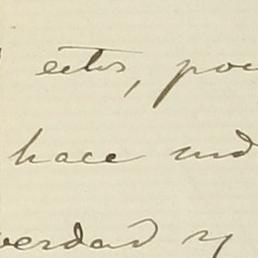 ectos, poc
hace ind
verdad y